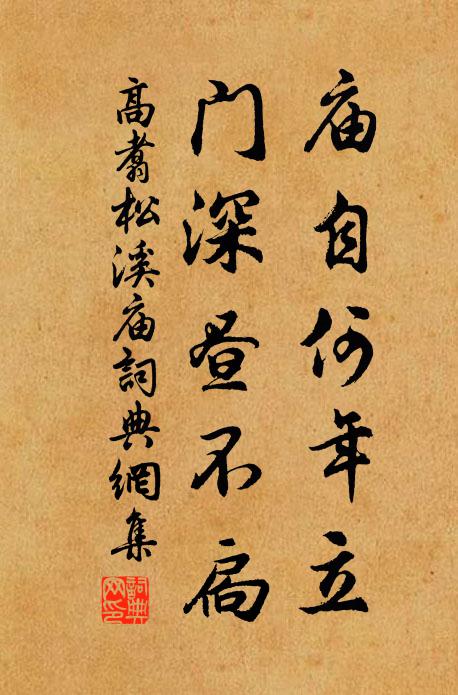 庙自何年立
门深昼不扃
高翥松溪庙詞典網集
詞典网印